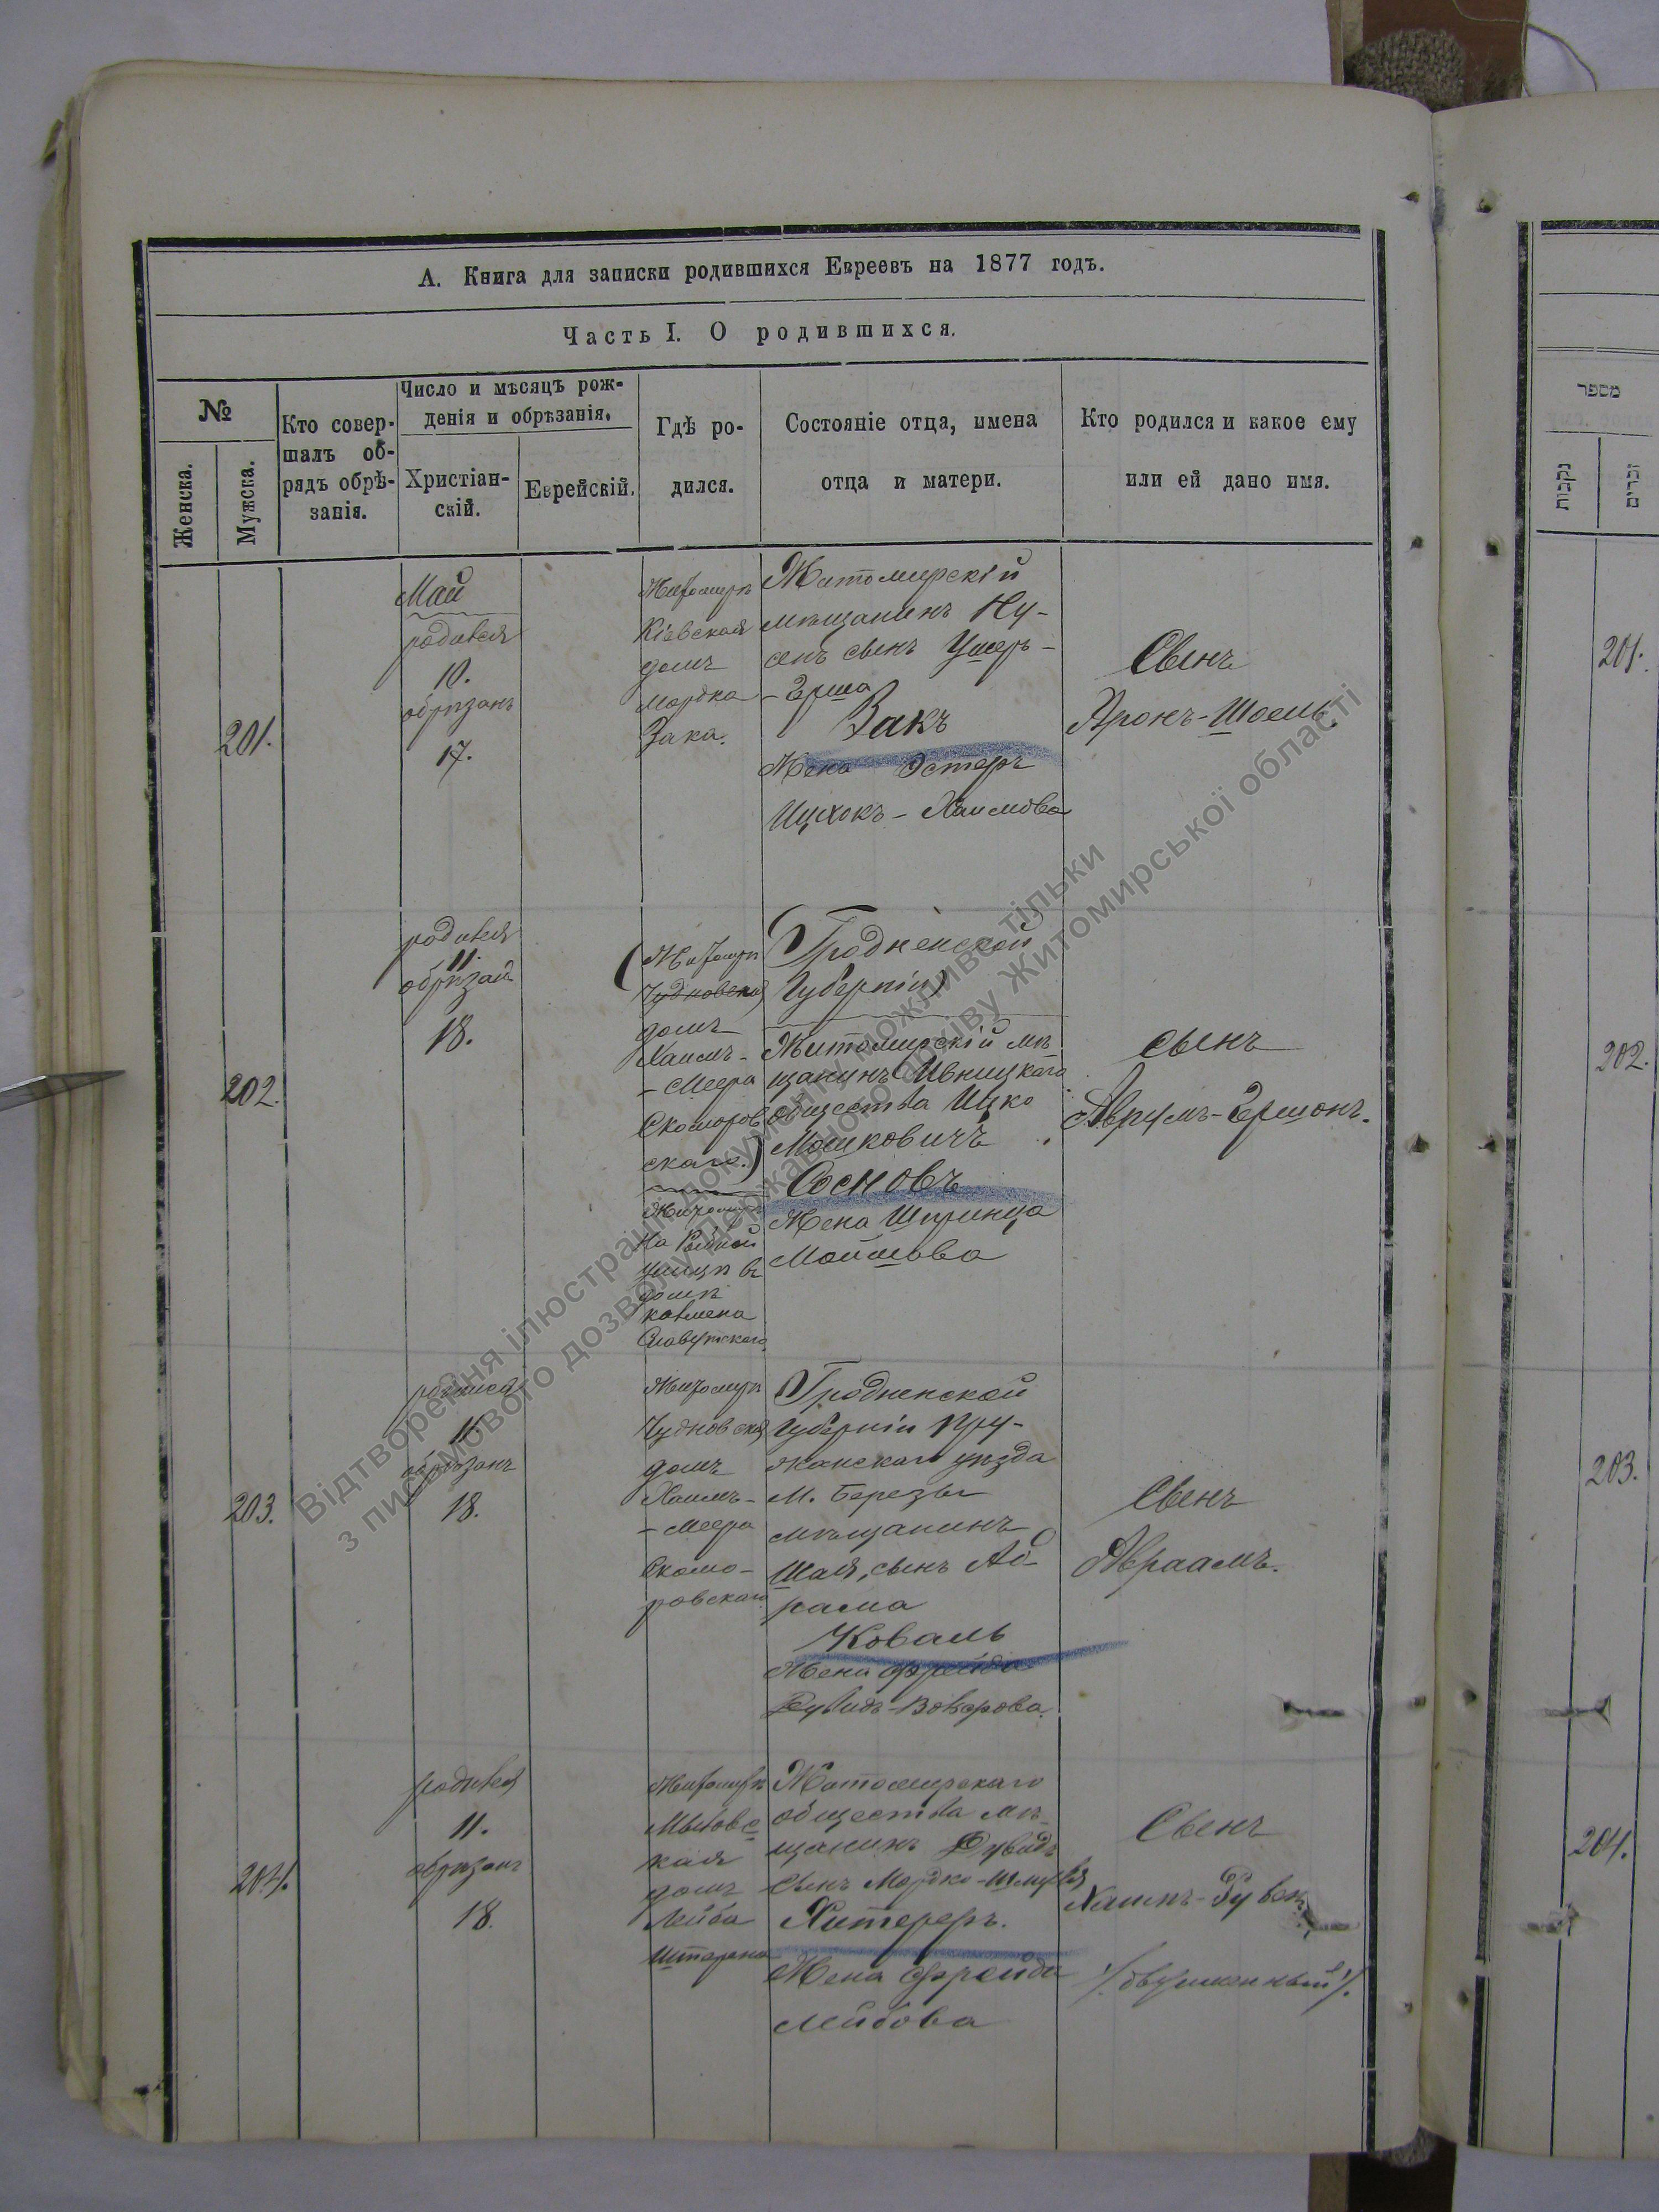 А. Книга для записки родившихся Евреевъ на 1877 годъ.
Часть I. О родившихся.
№
Женска.
Мужска.
Кто совер-
шалъ об-
рядъ обрѣ-
занія.
Число и мѣсяцъ рож-
денія и обрѣзанія.
Христіан-
скій.
Еврейскій.
Гдѣ ро-
дился.
Состояніе отца, имена
отца и матери.
Кто родился и какое ему
или ей дано имя.
201.
Май
родився
10.
обрѣзанъ
17.
Житомиръ
Кіевская
домъ
Мордка
Зака.
Житомирскій
мѣщанинъ Ну-
сенъ сынъ Ушеръ-
- Герша
Закъ
Жена Эстеръ
Ицхокъ - Хаимова
Сынъ
Аронъ-Шоель.
202.
родився
11.
обрѣзан
18.
(Житомиръ
Чудновская
домъ
Хаимъ-
- Меера
Скоморов
скаго.)
Житомиръ
на Рыбной
улицѣ въ
домѣ
Славутскаго
(Гродненской
Губерніи)
Житомирскій мѣ
щанинъ Ивницкаго
общества Ицко
Мошковичъ
Сосновъ
Жена Шпринца
Мойшова
сынъ
Аврумъ-Гершонъ.
203.
родився
11.
обрѣзанъ
18.
Житомиръ
Чудновская
домъ
Хаимъ-
- Меера
Скомо-
ровскаго
Гродненской
Губерніи Пру-
жанскаго уѣзда
М. Березы
мѣщанинъ
Шая, сынъ Аб-
рама
Коваль
Жена Фрейда
Дувидъ-Воверова.
Сынъ
Авраамъ.
204.
родився
11.
обрѣзанъ
18.
Житомиръ
кая
домъ
Лейба
Штерена
Житомирскаго
общества мѣ-
щанинъ Дувидъ
сынъ Мордко-Шмуля
Хитереръ.
Жена Фрейда
Лейбова
Сынъ
Хаимъ-Рувенъ
מספר
נקבות
זכרים
201.
202.
203.
204.
Відтворення ілюстрації документу можливе тільки
з письмового дозволу Державного архіву Житомирської області